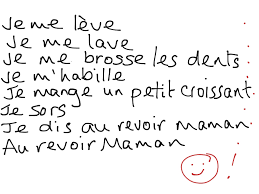 Je me lève
Je me lave
Je me brosse les dents
Je m'habille
Je mange un petit croissant.
Je sors
Je dis au revoir maman.
Au revoir Maman
!